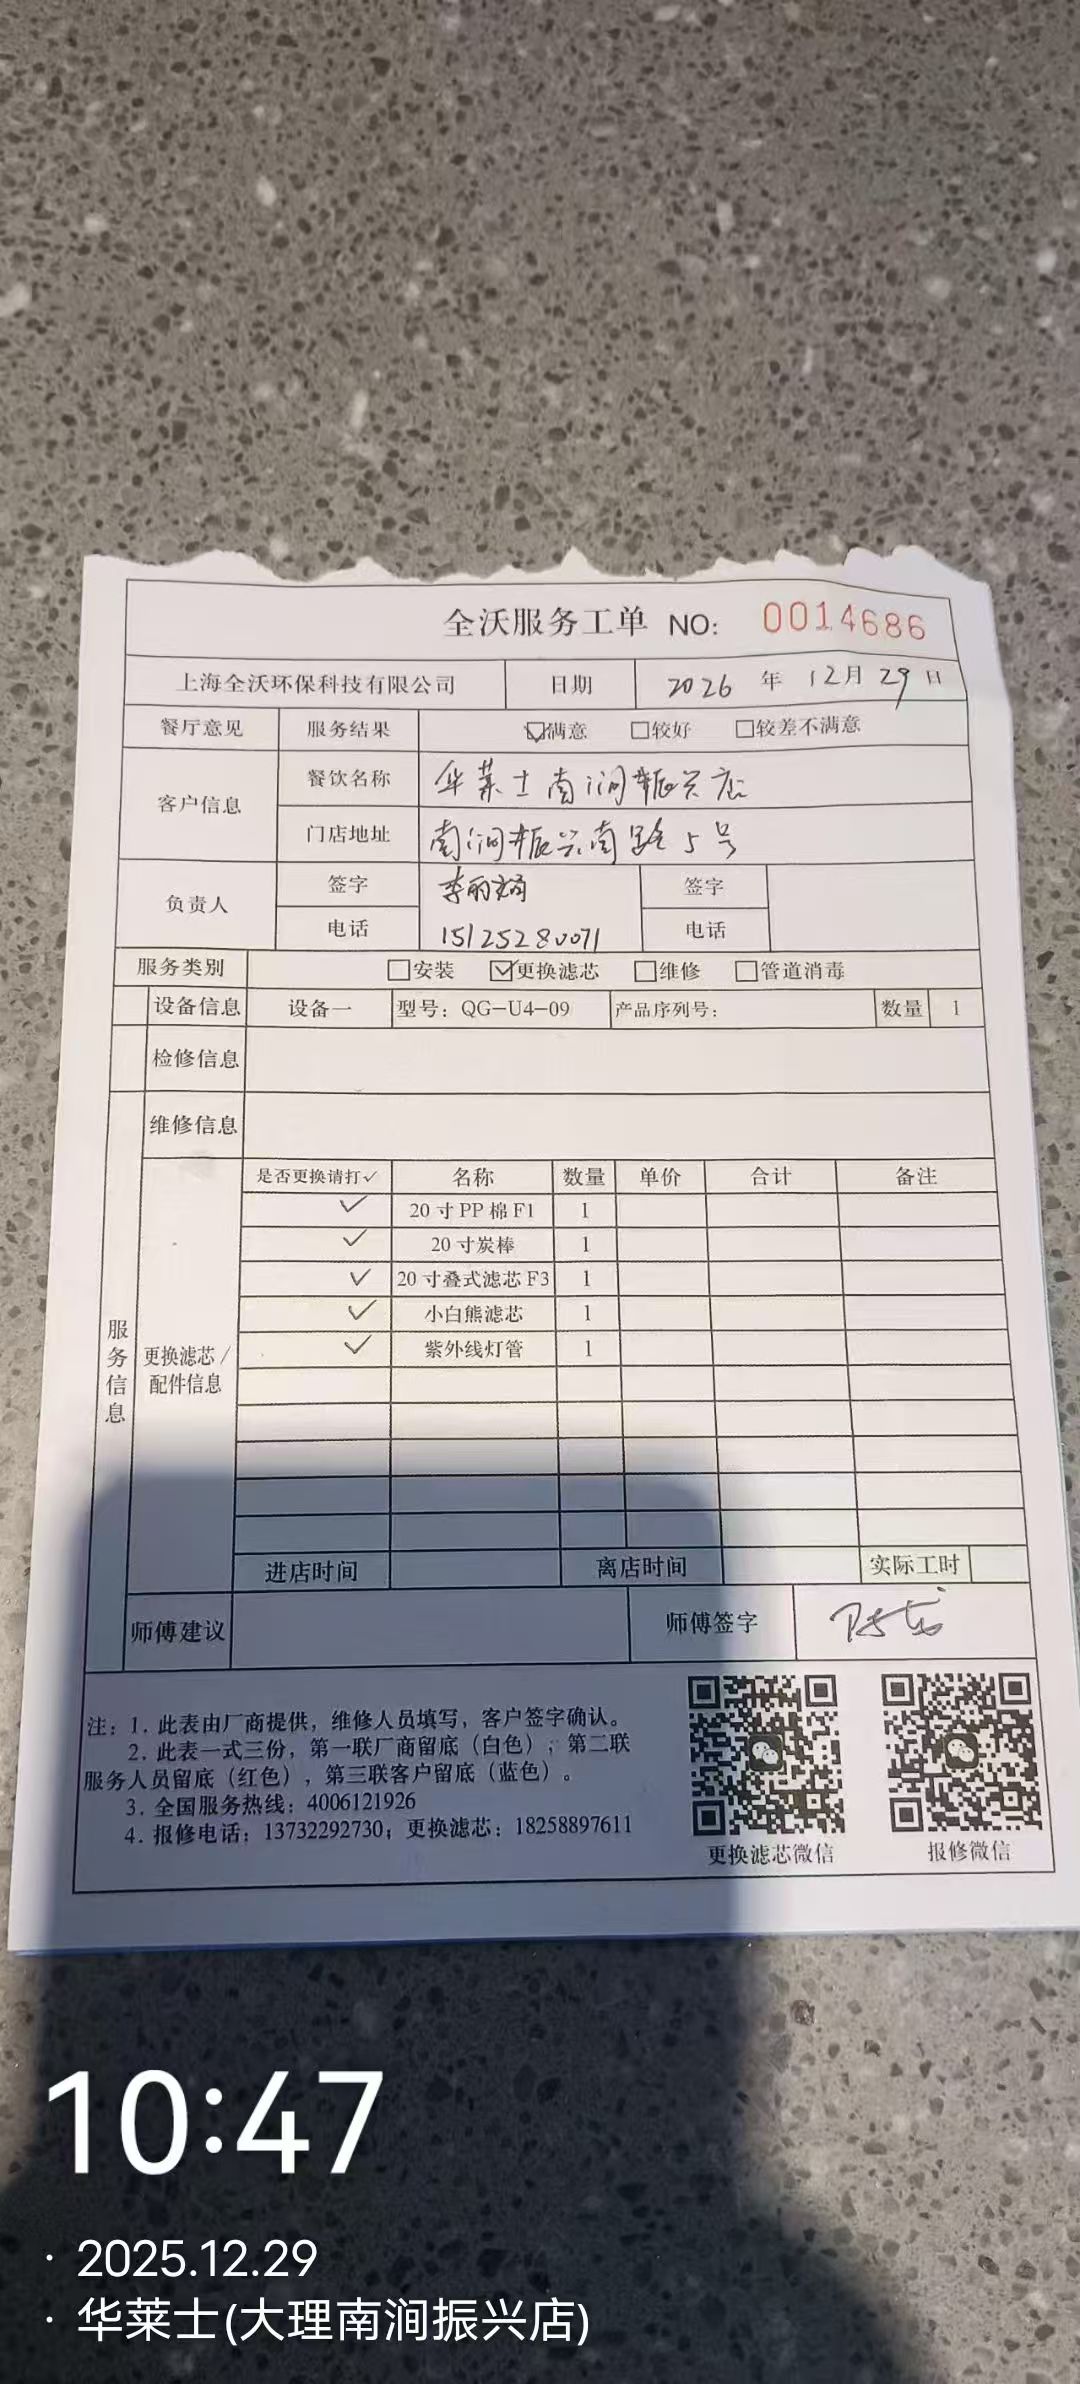 全沃服务工单 NO: 0014686
上海全沃环保科技有限公司 日期 2026 年 12月 29 日
餐厅意见 服务结果 ☑满意 □较好 □较差不满意
客户信息 餐饮名称 华莱士南涧振兴店
门店地址 南涧振兴南路5号
负责人 签字 李丽娟 签字
电话 15125280071 电话
服务类别 □安装 ☑更换滤芯 □维修 □管道消毒
设备信息 设备一 型号：QG-U4-09 产品序列号： 数量 1
检修信息
维修信息
服务信息
更换滤芯／配件信息
是否更换请打✓ 名称 数量 单价 合计 备注
✓ 20寸PP棉F1 1
✓ 20寸炭棒 1
✓ 20寸叠式滤芯F3 1
✓ 小白熊滤芯 1
✓ 紫外线灯管 1
进店时间 离店时间 实际工时
师傅建议 师傅签字
注：1. 此表由厂商提供，维修人员填写，客户签字确认。
2. 此表一式三份，第一联厂商留底（白色），第二联
服务人员留底（红色），第三联客户留底（蓝色）。
3. 全国服务热线：4006121926
4. 报修电话；13732292730；更换滤芯：18258897611
更换滤芯微信 报修微信
10:47
· 2025.12.29
· 华莱士(大理南涧振兴店)